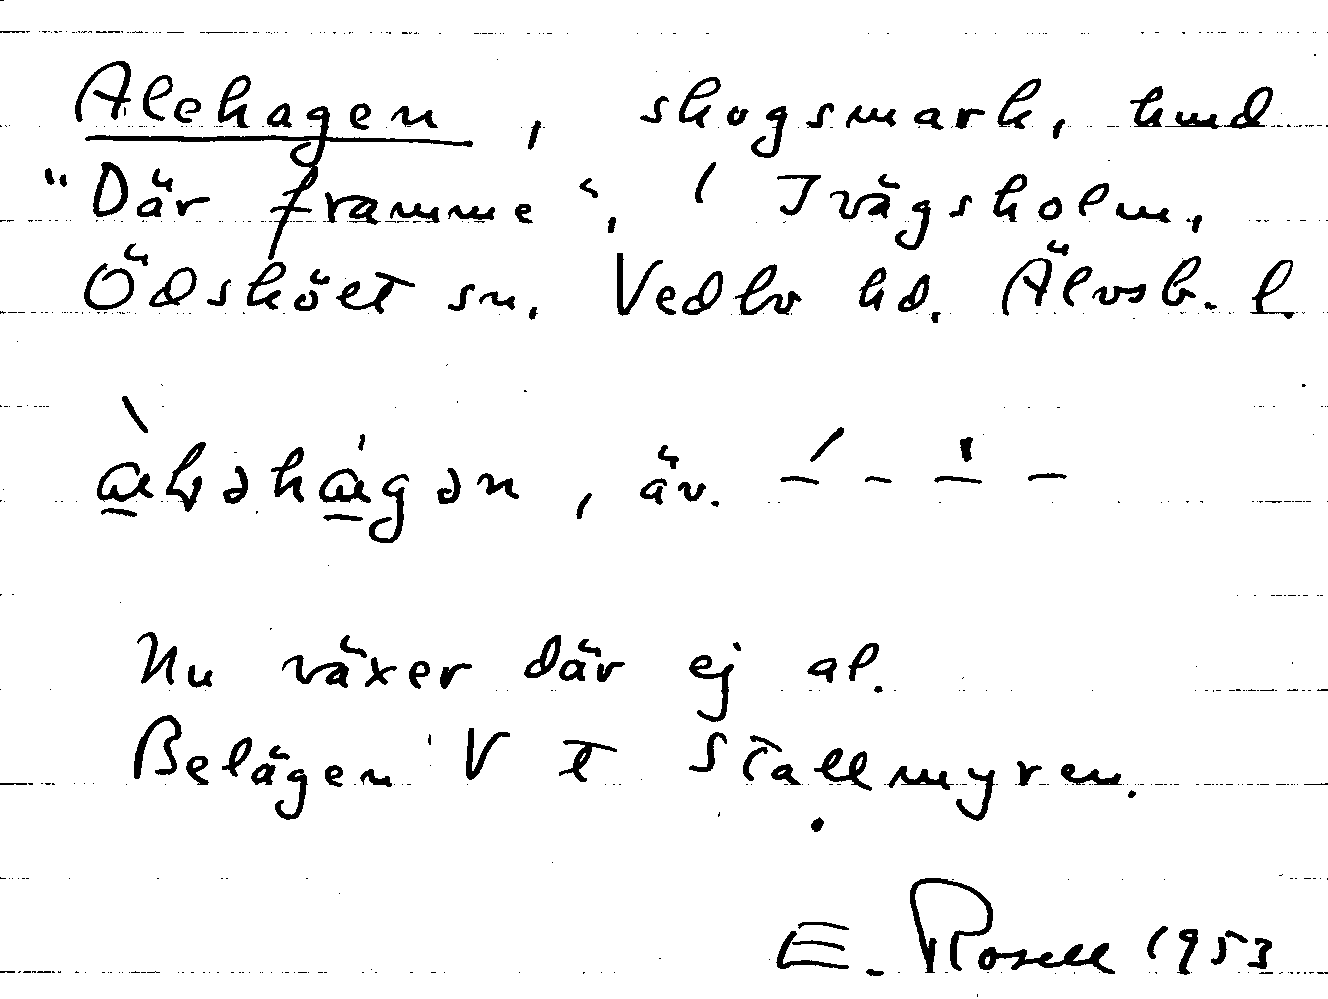 Alehagen, skogsmark, kmd
"Där framme", i Ivägsholm,
Ödskölt sn. Vedbo hd. Älvsb. l.
, äv.
Nu växer där ej al.
Belägen V t Stallmyren.
E. Rosell 1953